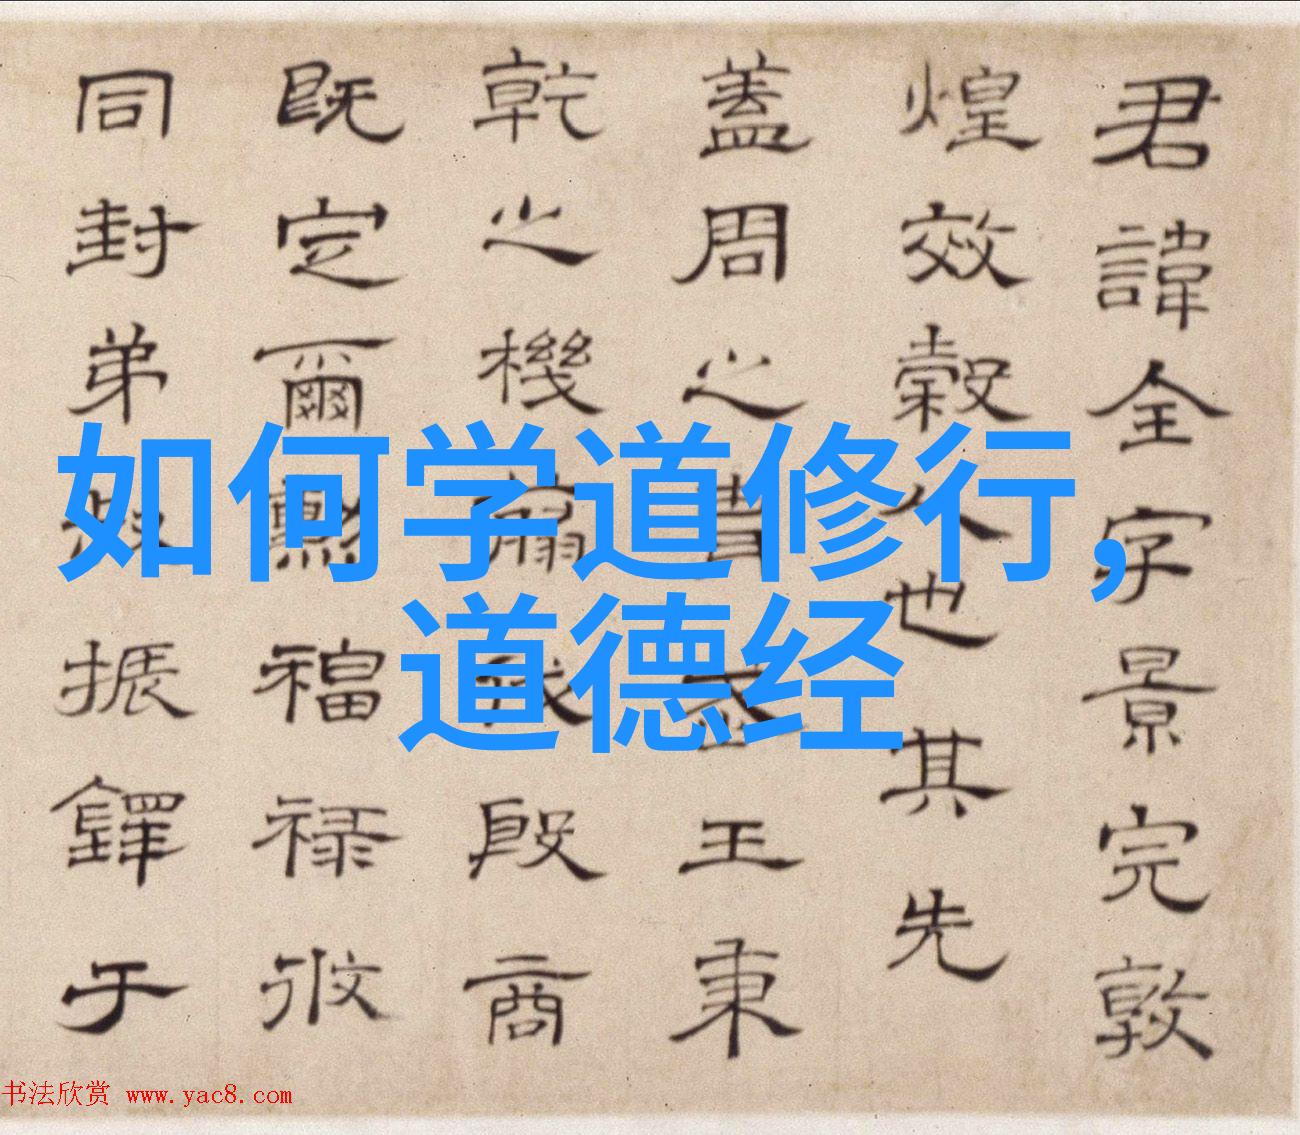 君諱全字景完敦
煌效穀人也其先
蓋周之胄武王秉
乾之機翦伐殷商
既定爾勳福祿攸
同封弟叔振鐸于
如何学道修行，
道德经
书法欣赏 www.yac8.com